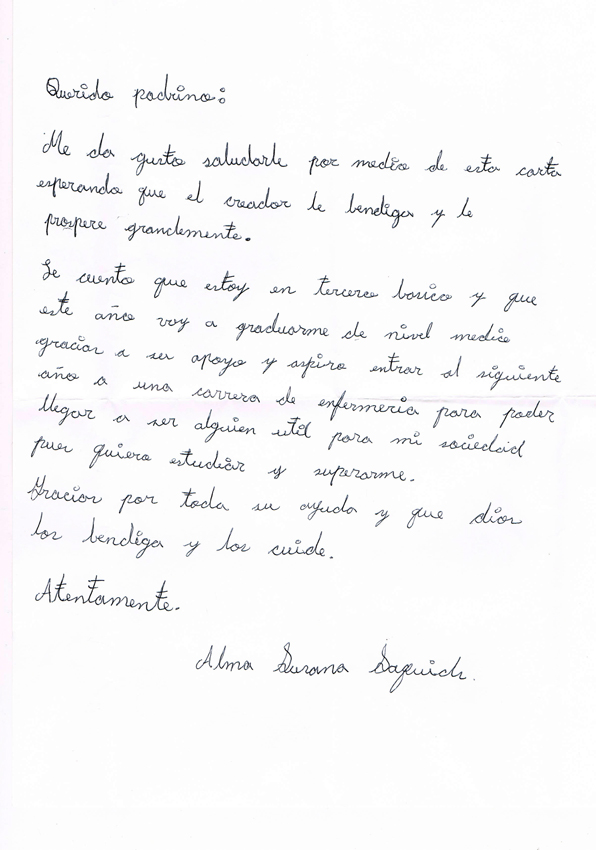 Querido padrino:
Me da gusto saludarle por medio de esta carta
esperando que el creador le bendiga y le
prospere grandemente.
Le cuento que estoy en tercero basico y que
este año voy a graduarme de nivel medio
gracias a su apoyo y aspiro entrar al siguiente
año a una carrera de enfermeria para poder
llegar a ser alguien util para mi sociedad
pues quiero estudiar y superarme.
Gracias por toda su ayuda y que dios
los bendiga y los cuide.
Atentamente.
Alma Susana Saquich.